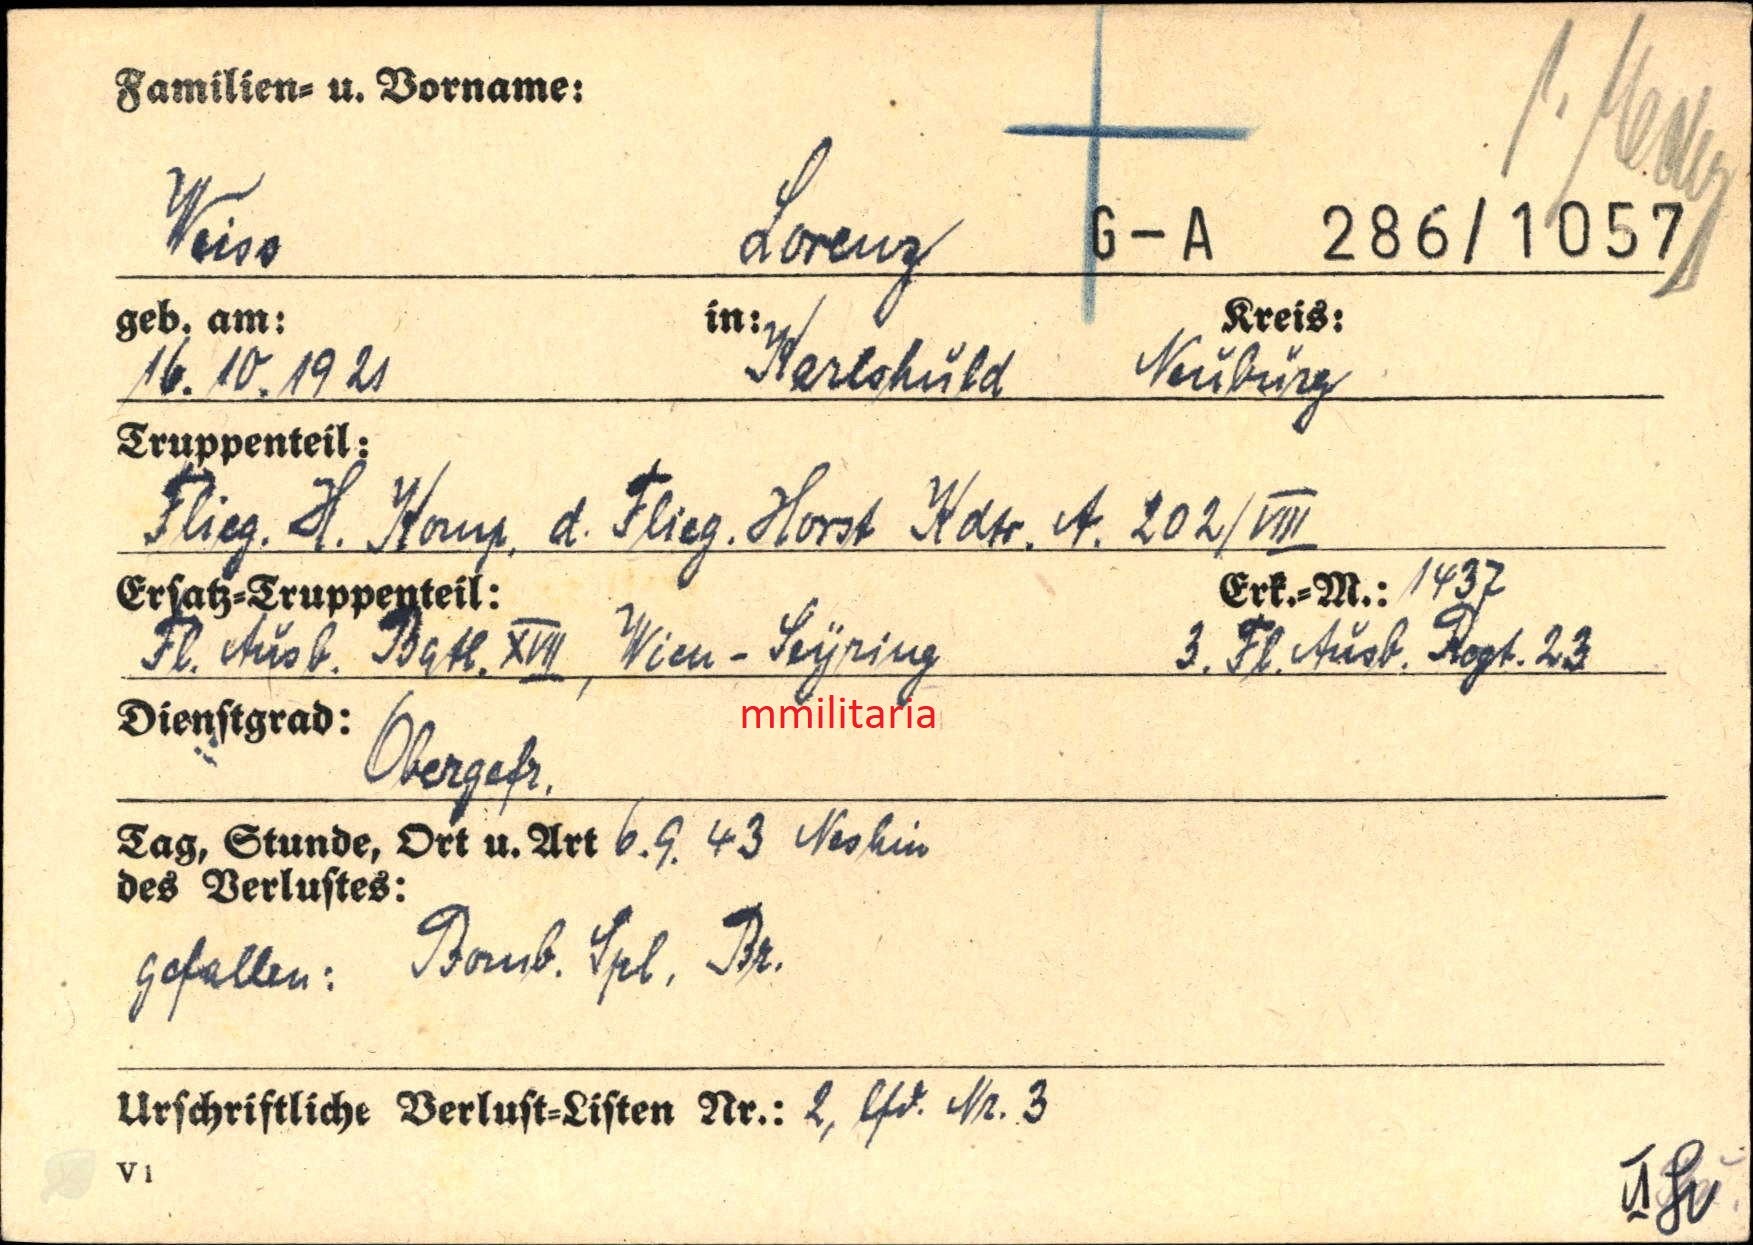 Familien- u. Vorname:
Weiss Lorenz G-A 286/1057
geb. am: in: Kreis:
16. 10. 1921 Karlshuld Neuburg
Truppenteil:
Flieg. H. Komp. d. Flieg. Horst Kdtr. A. 202/VIII
Ersatz-Truppenteil: Erk.-M.: 1437
Fl. Ausb. Batl. XVIII, Wien-Seyring 3. Fl. Ausb. Regt. 23
mmilitaria
Dienstgrad: Obergefr.
Tag, Stunde, Ort u. Art 6.9.43 Neshin
des Verlustes:
gefallen: Bomb. Spl. Br.
Urschriftliche Verlust-Listen Nr.: 2, lfd. Nr. 3
V 1